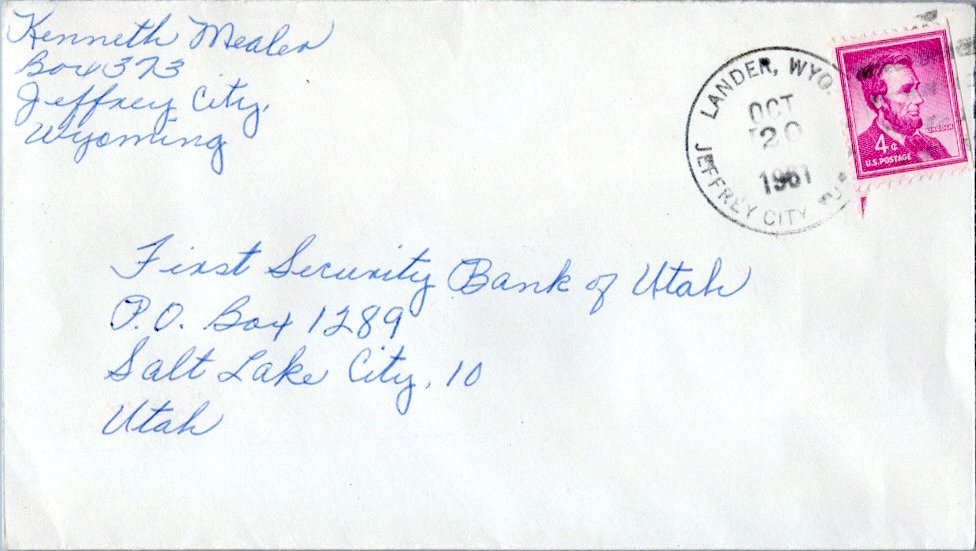 Kenneth Mealer
Box 373
Jeffrey City,
Wyoming
LANDER, WYO.
OCT
20
1961
JEFFREY CITY
LINCOLN
4¢
U.S. POSTAGE
First Security Bank of Utah
P.O. Box 1289
Salt Lake City, 10
Utah